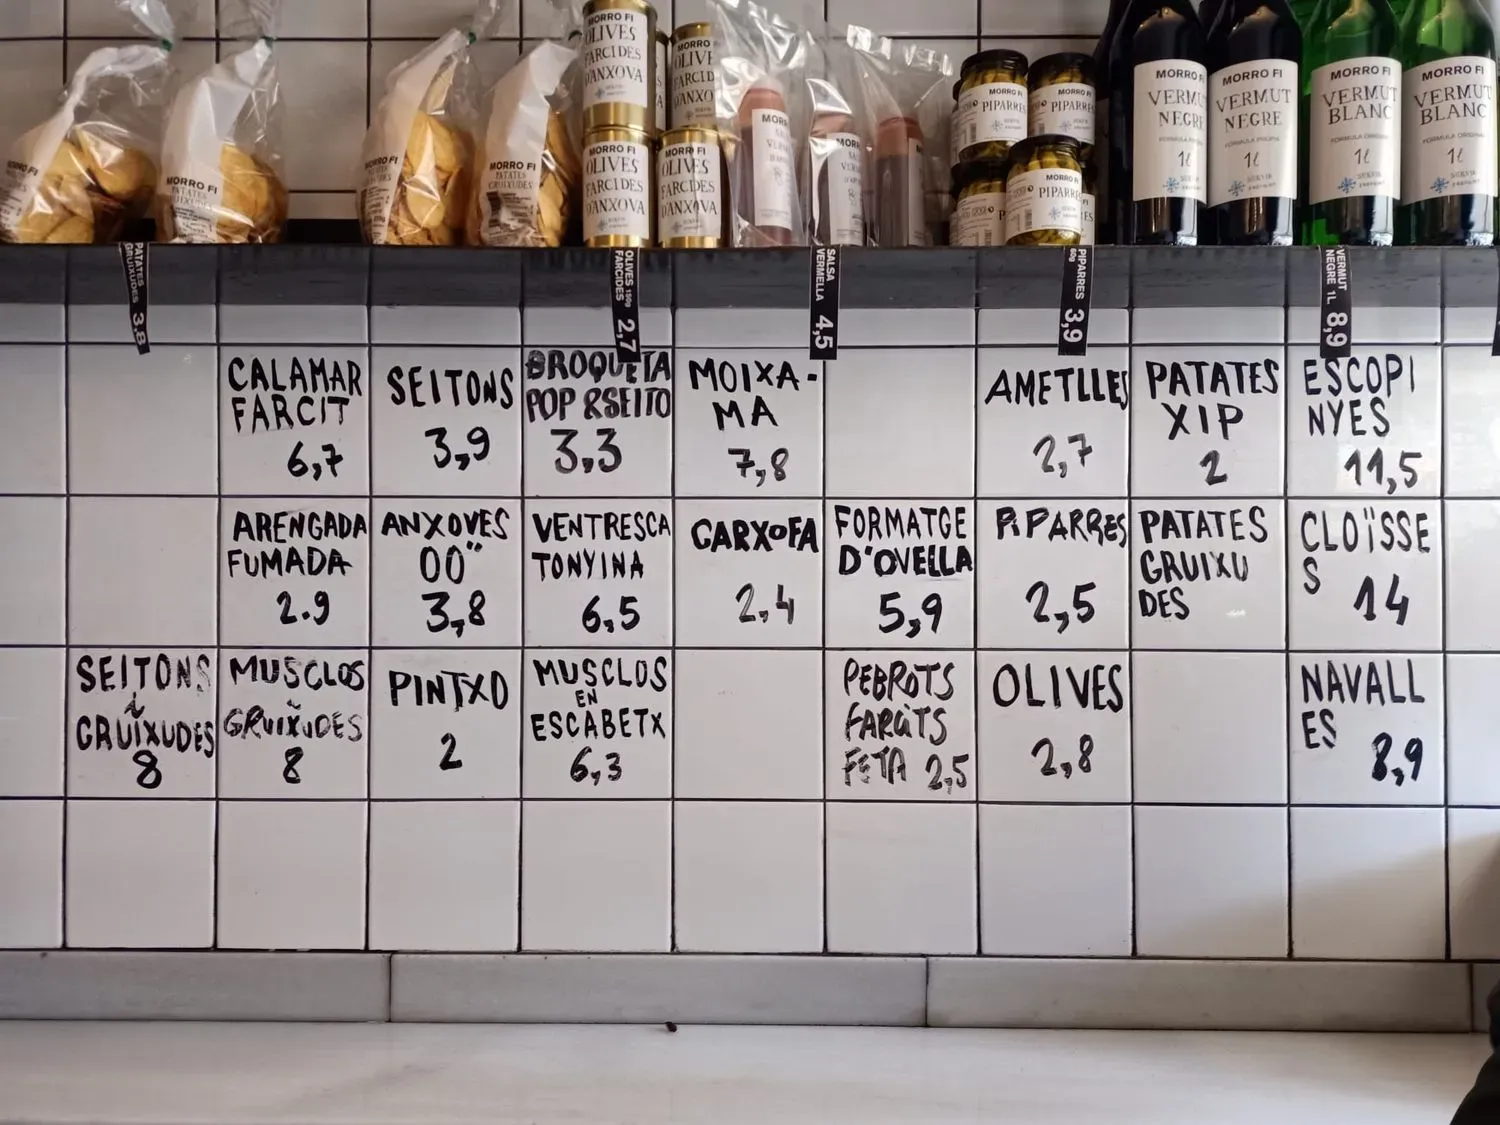 MORRO FI
MORRO FI
PATATES
MORRO FI
MORRO FI
PATATES
GRUIXUDES
MORRO FI
OLIVES
FARCIDES
D'ANXOVA
MORRO
OLIVE
FARCID
D'ANXO
MORRO FI
OLIVES
FARCIDES
D'ANXOVA
MORRO FI
OLIVES
FARCIDES
D'ANXOVA
MORRO FI
PIPARRES
MORRO FI
PIPARRES
MORRO FI
PIPARRES
MORRO FI
VERMUT
NEGRE
1ℓ
MORRO FI
VERMUT
NEGRE
FORMULA PROPIA
1ℓ
MORRO FI
VERMUT
BLANC
FORMULA ORIGINAL
1ℓ
MORRO FI
VERMUT
BLANC
FORMULA ORIGINAL
1ℓ
PATATES
GRUIXUDES 3,8
OLIVES 150g
FARCIDES 2,7
SALSA
VERMELLA 4,5
PIPARRES
60g 3,9
VERMUT
NEGRE 1L 8,9
CALAMAR
FARCIT
6,7
SEITONS
3,9
BROQUETA
POP &SEITO
3,3
MOIXA-
MA
7,8
AMETLLES
2,7
PATATES
XIP
2
ESCOPI
NYES
11,5
ARENGADA
FUMADA
2.9
ANXOVES
00"
3,8
VENTRESCA
TONYINA
6,5
CARXOFA
2,4
FORMATGE
D'OVELLA
5,9
PIPARRES
2,5
PATATES
GRUIXU
DES
CLOÏSSE
S
14
SEITONS
i
GRUIXUDES
8
MUSCLOS
i
GRUIXUDES
8
PINTXO
2
MUSCLOS
EN
ESCABETX
6,3
PEBROTS
FARCITS
FETA 2,5
OLIVES
2,8
NAVALL
ES
8,9